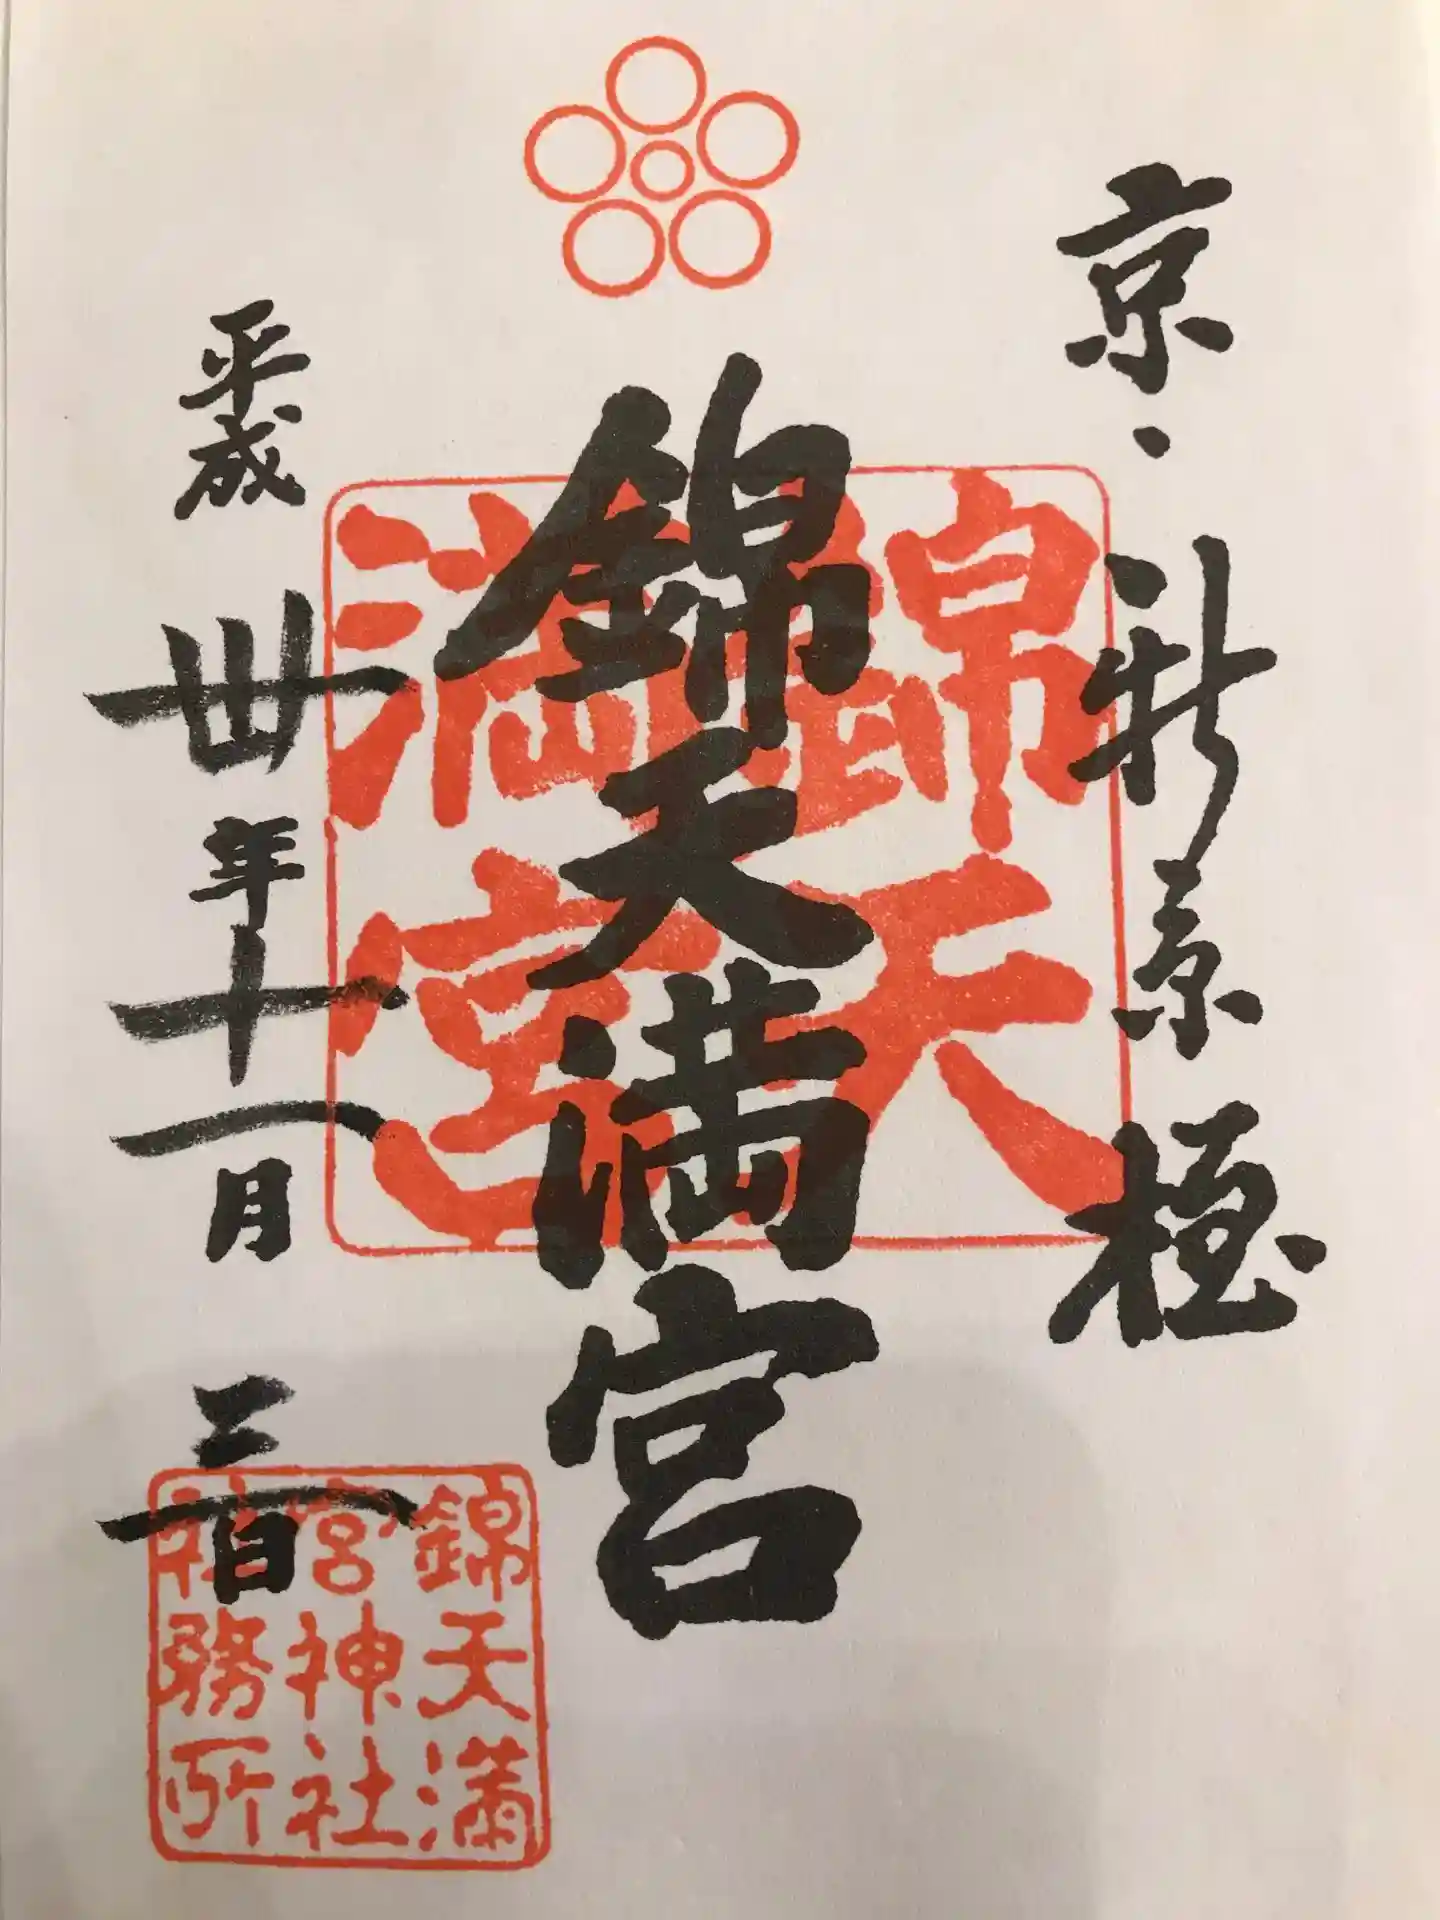 京・新京極
錦天満宮
錦天
満宮
平成丗年十一月三日
錦天満
宮神社
社務所